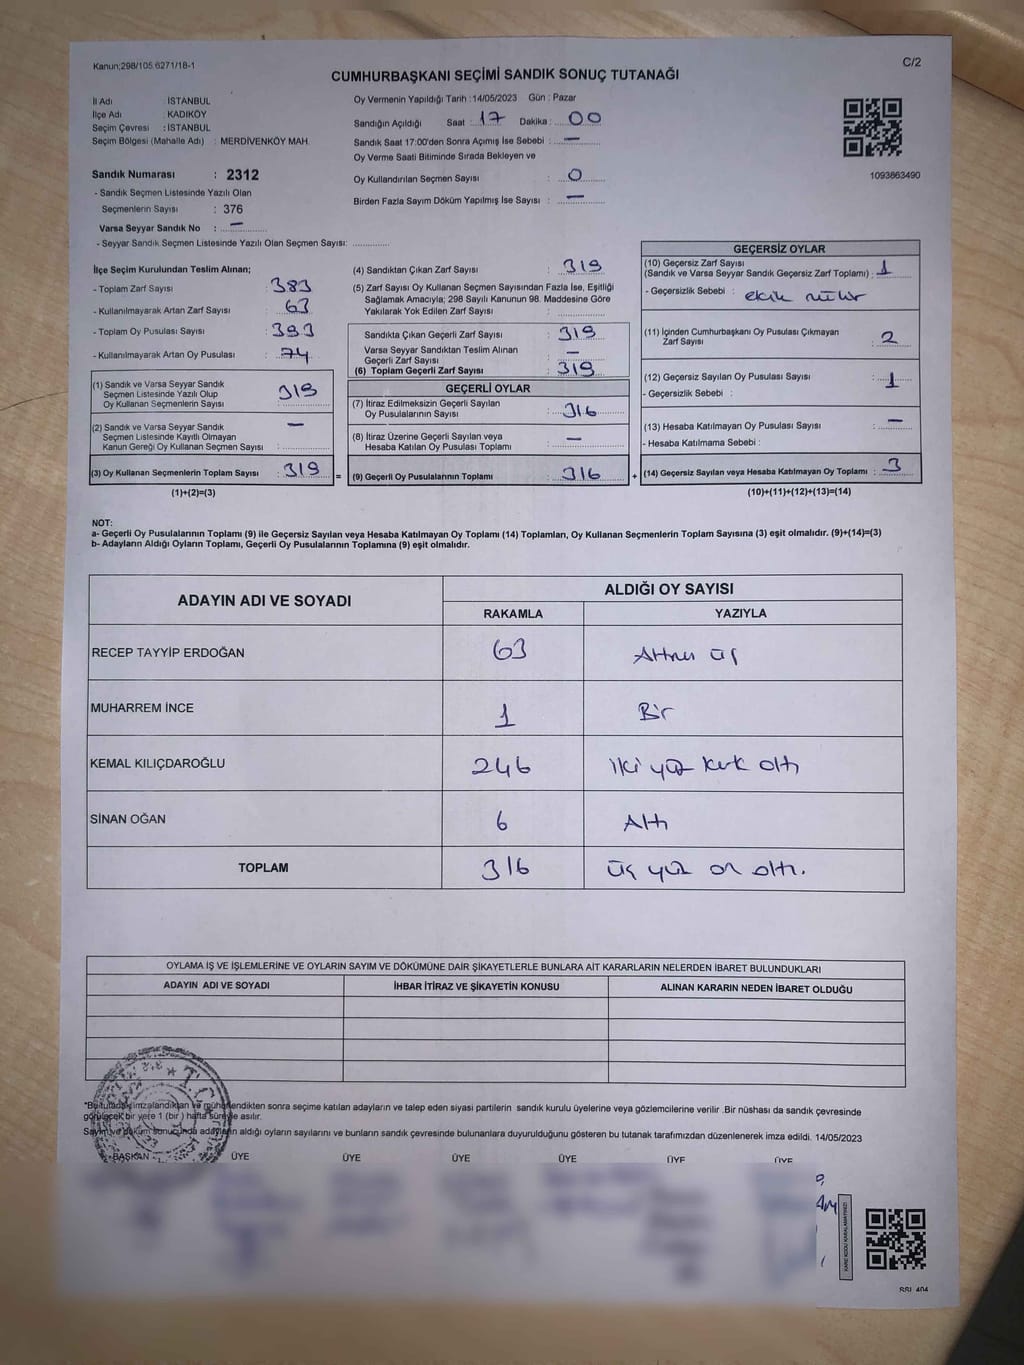 Kanun;298/105.6271/18-1
C/2
CUMHURBAŞKANI SEÇİMİ SANDIK SONUÇ TUTANAĞI
İl Adı : İSTANBUL
İlçe Adı : KADIKÖY
Seçim Çevresi : İSTANBUL
Seçim Bölgesi (Mahalle Adı) : MERDİVENKÖY MAH.
Sandık Numarası : 2312
- Sandık Seçmen Listesinde Yazılı Olan
Seçmenlerin Sayısı : 376
Varsa Seyyar Sandık No : —
- Seyyar Sandık Seçmen Listesinde Yazılı Olan Seçmen Sayısı: ..............
Oy Vermenin Yapıldığı Tarih : 14/05/2023 Gün : Pazar
Sandığın Açıldığı Saat : 17 Dakika : 00
Sandık Saat 17:00'den Sonra Açımış İse Sebebi : —
Oy Verme Saati Bitiminde Sırada Bekleyen ve
Oy Kullandırılan Seçmen Sayısı : 0
Birden Fazla Sayım Döküm Yapılmış İse Sayısı : —
1093863490
İlçe Seçim Kurulundan Teslim Alınan;
- Toplam Zarf Sayısı : 383
- Kullanılmayarak Artan Zarf Sayısı : 63
- Toplam Oy Pusulası Sayısı : 393
- Kullanılmayarak Artan Oy Pusulası : 74
(1) Sandık ve Varsa Seyyar Sandık
Seçmen Listesinde Yazılı Olup
Oy Kullanan Seçmenlerin Sayısı : 319
(2) Sandık ve Varsa Seyyar Sandık
Seçmen Listesinde Kayıtlı Olmayan
Kanun Gereği Oy Kullanan Seçmen Sayısı : —
(3) Oy Kullanan Seçmenlerin Toplam Sayısı : 319
(1)+(2)=(3)
=
(4) Sandıktan Çıkan Zarf Sayısı : 319
(5) Zarf Sayısı Oy Kullanan Seçmen Sayısından Fazla İse, Eşitliği
Sağlamak Amacıyla; 298 Sayılı Kanunun 98. Maddesine Göre
Yakılarak Yok Edilen Zarf Sayısı :
Sandıkta Çıkan Geçerli Zarf Sayısı : 319
Varsa Seyyar Sandıktan Teslim Alınan
Geçerli Zarf Sayısı : —
(6) Toplam Geçerli Zarf Sayısı : 319
GEÇERLİ OYLAR
(7) İtiraz Edilmeksizin Geçerli Sayılan
Oy Pusulalarının Sayısı : 316
(8) İtiraz Üzerine Geçerli Sayılan veya
Hesaba Katılan Oy Pusulası Toplamı : —
(9) Geçerli Oy Pusulalarının Toplamı : 316
+
GEÇERSİZ OYLAR
(10) Geçersiz Zarf Sayısı
(Sandık ve Varsa Seyyar Sandık Geçersiz Zarf Toplamı) : 1
- Geçersizlik Sebebi : eksik mühür
(11) İçinden Cumhurbaşkanı Oy Pusulası Çıkmayan
Zarf Sayısı : 2
(12) Geçersiz Sayılan Oy Pusulası Sayısı : 1
- Geçersizlik Sebebi :
(13) Hesaba Katılmayan Oy Pusulası Sayısı : —
- Hesaba Katılmama Sebebi :
(14) Geçersiz Sayılan veya Hesaba Katılmayan Oy Toplamı : 3
(10)+(11)+(12)+(13)=(14)
NOT:
a- Geçerli Oy Pusulalarının Toplamı (9) ile Geçersiz Sayılan veya Hesaba Katılmayan Oy Toplamı (14) Toplamları, Oy Kullanan Seçmenlerin Toplam Sayısına (3) eşit olmalıdır. (9)+(14)=(3)
b- Adayların Aldığı Oyların Toplamı, Geçerli Oy Pusulalarının Toplamına (9) eşit olmalıdır.
ADAYIN ADI VE SOYADI ALDIĞI OY SAYISI
RAKAMLA YAZIYLA
RECEP TAYYİP ERDOĞAN 63 Altmış üç
MUHARREM İNCE 1 Bir
KEMAL KILIÇDAROĞLU 246 iki yüz kırk altı
SİNAN OĞAN 6 Altı
TOPLAM 316 üç yüz on altı.
OYLAMA İŞ VE İŞLEMLERİNE VE OYLARIN SAYIM VE DÖKÜMÜNE DAİR ŞİKAYETLERLE BUNLARA AİT KARARLARIN NELERDEN İBARET BULUNDUKLARI
ADAYIN ADI VE SOYADI İHBAR İTİRAZ VE ŞİKAYETİN KONUSU ALINAN KARARIN NEDEN İBARET OLDUĞU
*Bu tutanak imzalandıktan ve mühürlendikten sonra seçime katılan adayların ve talep eden siyasi partilerin sandık kurulu üyelerine veya gözlemcilerine verilir .Bir nüshası da sandık çevresinde
görülecek bir yere 1 (bir ) hafta süreyle asılır.
Sayım ve döküm sonucunda adayların aldığı oyların sayılarını ve bunların sandık çevresinde bulunanlara duyurulduğunu gösteren bu tutanak tarafımızdan düzenlenerek imza edildi. 14/05/2023
BAŞKAN ÜYE ÜYE ÜYE ÜYE ÜYE ÜYE
KARE KODU KARALAMAYINIZ!